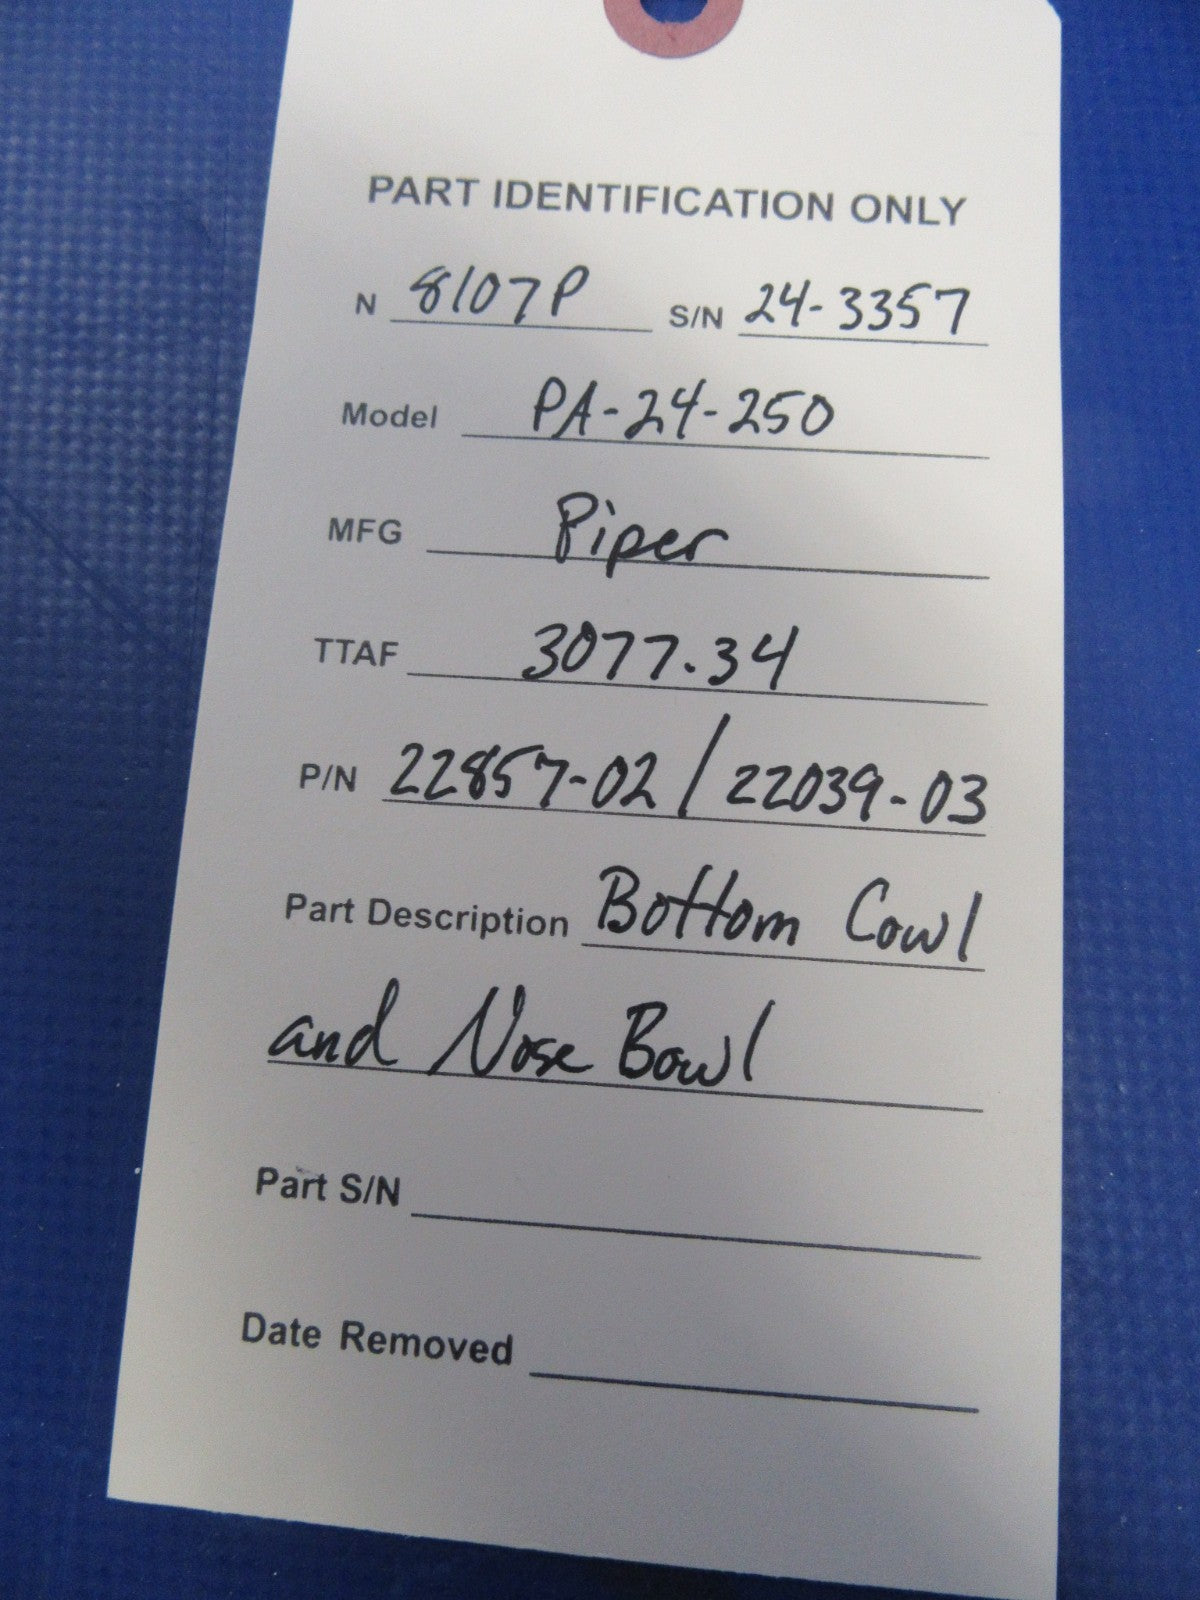 PART IDENTIFICATION ONLY
N 8107P S/N 24-3357
Model PA-24-250
MFG Piper
TTAF 3077.34
P/N 22857-02 / 22039-03
Part Description Bottom Cowl
and Nose Bowl
Part S/N
Date Removed